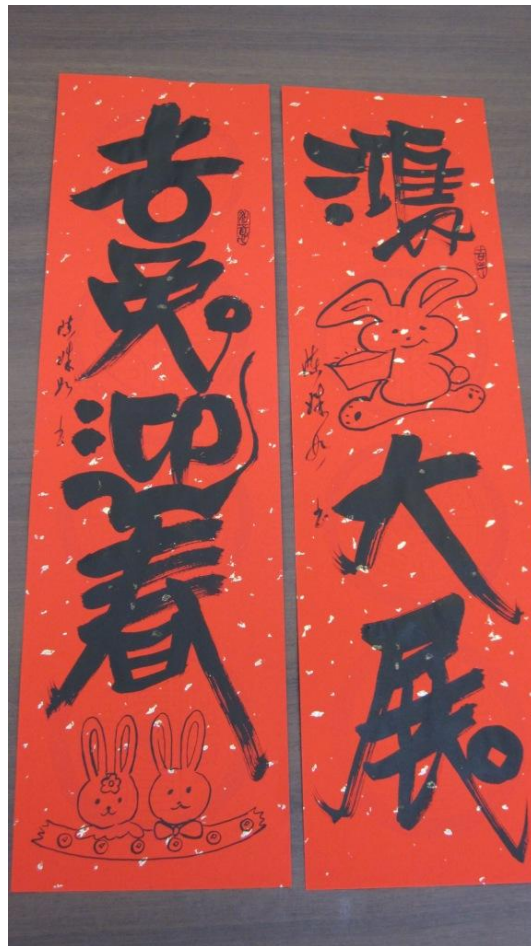 鴻
大展
吉兔迎春